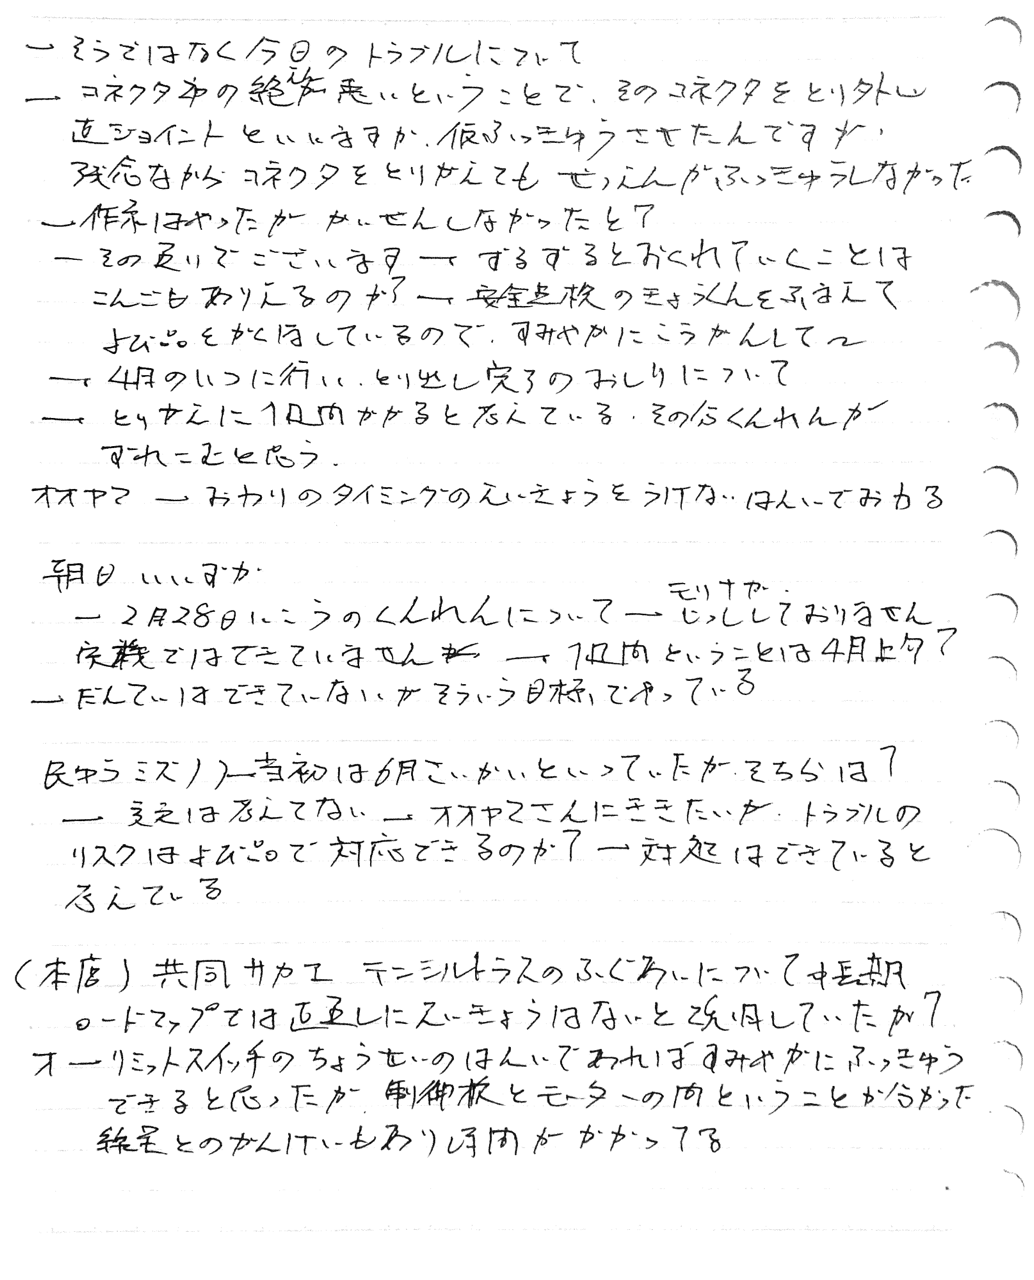 → そうではなく今日のトラブルについて
→ コネクタ部の絶縁悪いということで、そのコネクタをとり外し
直ジョイントといいますか、仮ふっきゅうさせたんですが、
残念ながらコネクタをとりかえてもぜつえんがふっきゅうしなかった
→ 作業はやったがかいぜんしなかったと?
→ その通りでございます → ずるずるとおくれていくことは
こんごもありえるのか? → 安全点検のきょうくんをふまえて
よび品をかくほしているので、すみやかにこうかんして〜
→ 4月のいつに行い、とり出し完了のおしりについて
→ とりかえに1週間かかると考えている。その分くんれんが
ずれこむと思う。
オオヤマ → おわりのタイミングのえいきょうをうけないはんいでおわる
朝日 いいずか
→ 2月28日いこうのくんれんについて → じっししておりません
モリナガ.
実機ではできていません → 1週間ということは4月上旬?
→ だんていはできていないがそういう目標でやっている
民ゆう ミズノ → 当初は6月さいかいといっていたが、そちらは?
→ 変えは考えてない → オオヤマさんにききたいが、トラブルの
リスクはよび品で対応できるのか? → 対処はできていると
考えている
(本店) 共同 サカエ テンシルトラスのふぐあいについて中長期
ロードマップでは直直しにえいきょうはないと説明していたが?
オ → リミットスイッチのちょうせいのはんいであればすみやかにふっきゅう
できると思ったが、制御板とモーターの間ということが分かった
線量とのかんけいもあり時間がかかってる